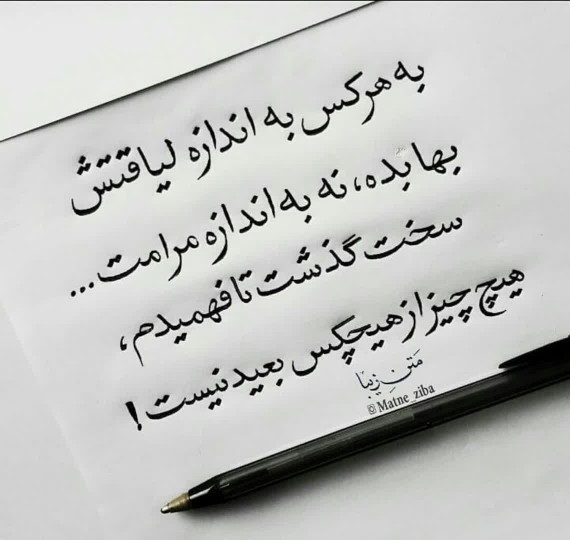 به هرکس به اندازه لیاقتش
بها بده، نه به اندازه مرامت...
سخت گذشت تا فهمیدم،
هیچ چیز از هیچکس بعید نیست!
مَتنِ زیبَا
© Matne_ziba